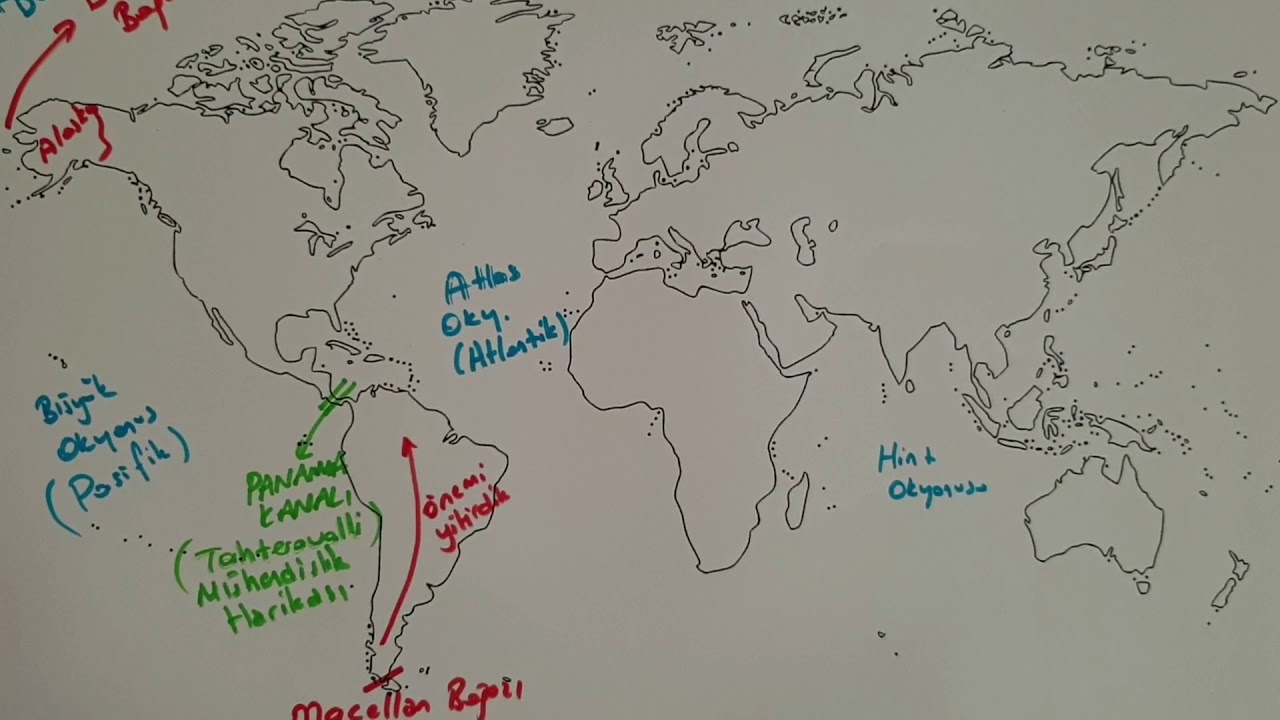 Alaska
Atlas
Oky.
(Atlantik)
Büyük
Okyanus
(Pasifik)
PANAMA
KANALI
(Tahteravalli
Mühendislik
Harikası)
önemi
yitirdik
Hint
Okyanusu
Macellan Boğazı